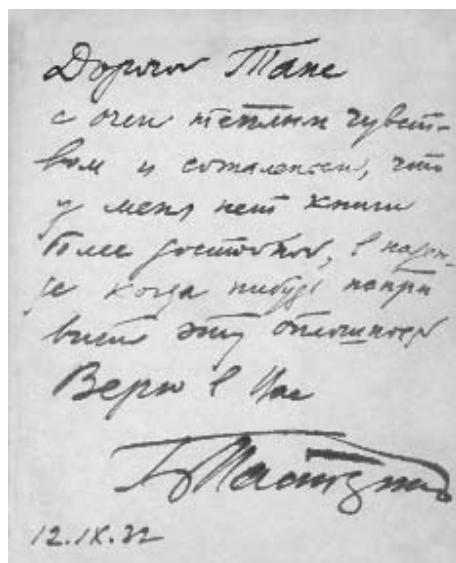 Дорогой Тане
с очень теплым чувст-
вом и сожалением, что
у меня нет книги
более достойной, в надеж-
де когда нибудь попра
вить эту оплошность
Верю в Вас
12.IX.